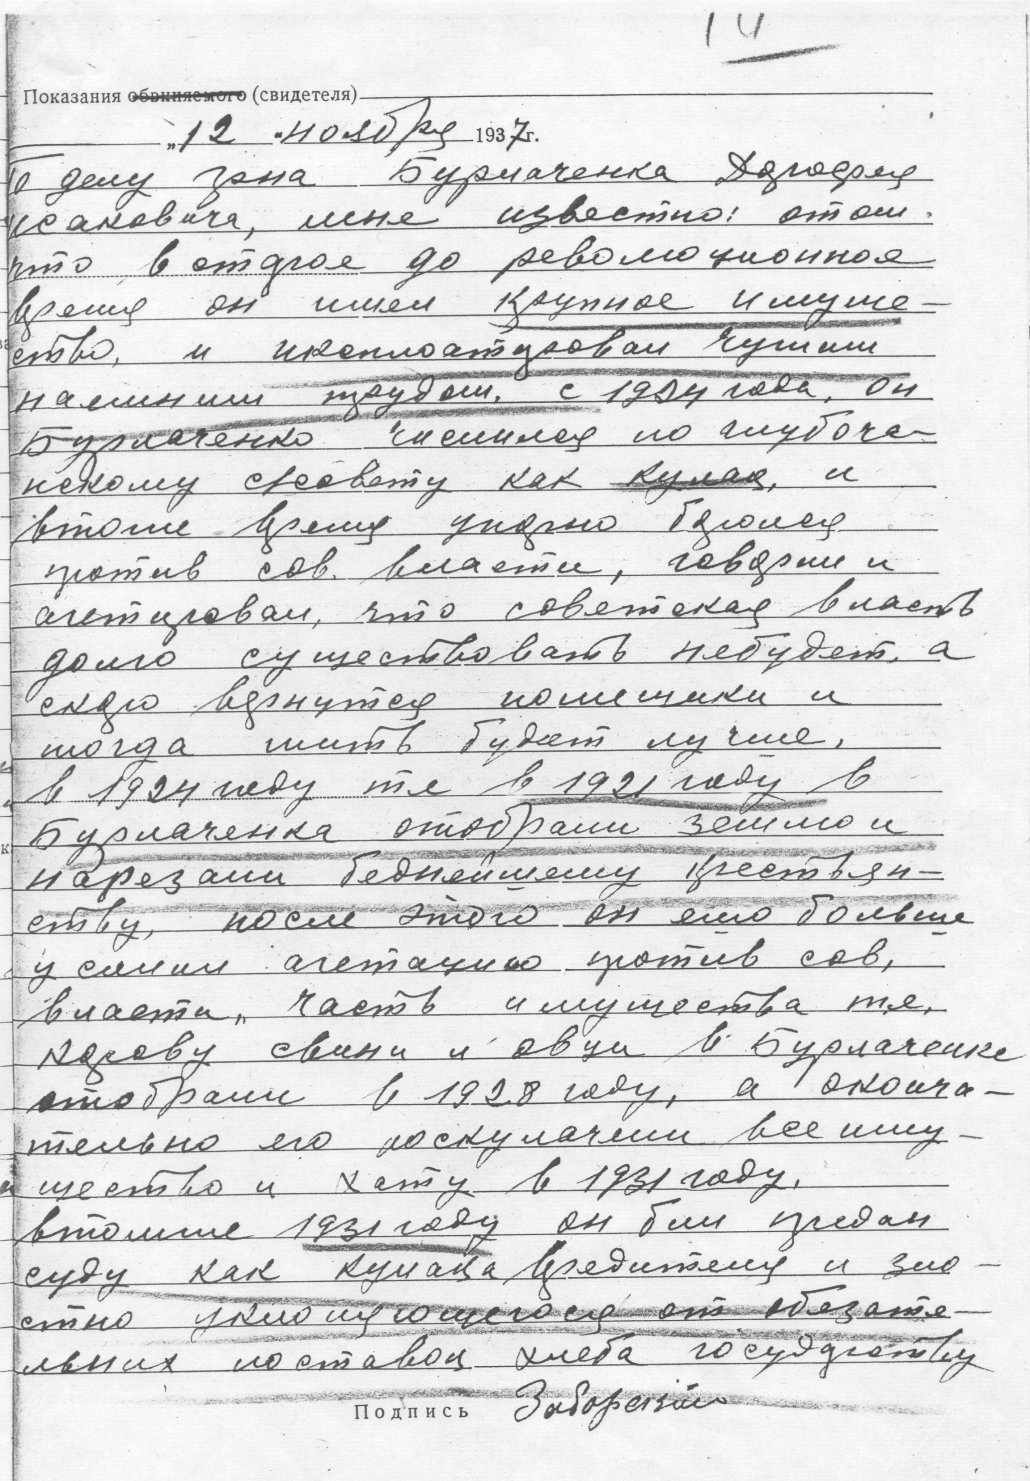 14
Показания обвиняемого (свидетеля)
„12 " ноября 1937 г.
По делу г-на Бурлаченка Дорофея
Исаковича, мне известно: отом.
что в старое до революционное
время он имел крупное имуще-
ство, и иксплоатировал чужим
наемним трудом. с 1924 года, он
Бурлаченко числился по глубоча-
нскому с/совету как кулак, и
втоже время упорно боролся
против сов. власти, говорил и
агетировал, что советская власть
долго существовать небудет, а
скоро вернутся помещики и
тогда жить будет лучше.
в 1924 году те в 1921 году в
Бурлаченка отобрали землю и
нарезали беднейшему крестьян-
ству, после этого он ещо больше
усилил агетацию против сов.
власти,, часть имущества те.
корову свини и овци в Бурлаченке
отобрали в 1928 году, а оконча-
тельно его роскулачили все иму-
щество и хату в 1931 году.
втомже 1931 году он был предан
суду как кулака вредителя и зло-
стно уклоняющегося от обязате-
льних поставок хлеба государству
Подпись Заборский